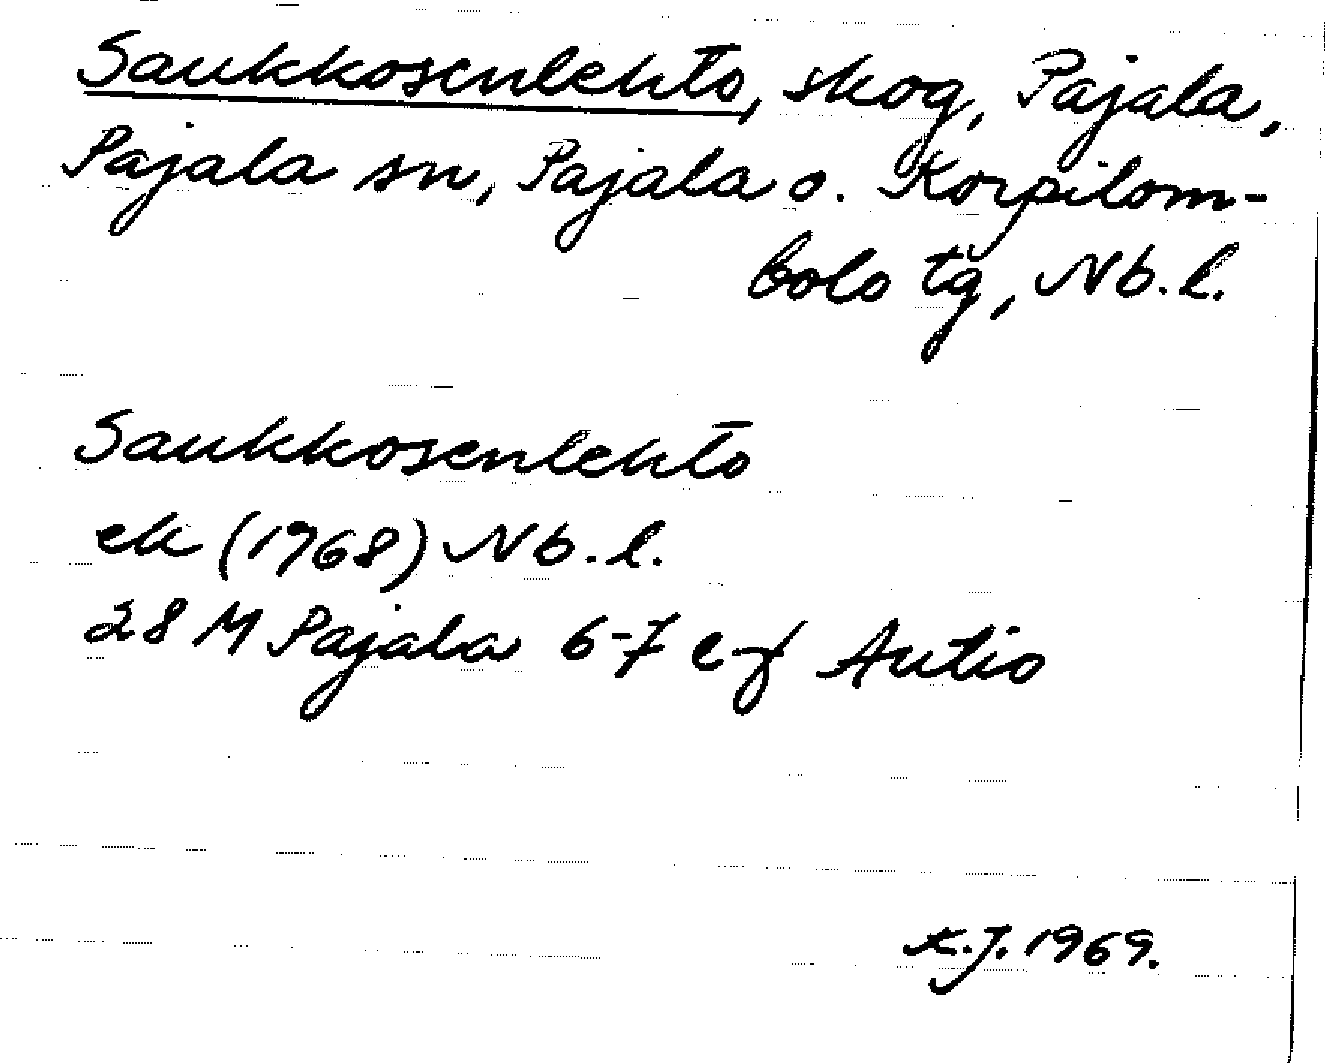 Saukkosenlehto, skog, Pajala,
Pajala sn, Pajala o. Korpilom-
bolo tg, Nb.l.
Saukkosenlehto
ek (1968) Nb.l.
28 M Pajala 6-7 e-f Autio
K.J. 1969.